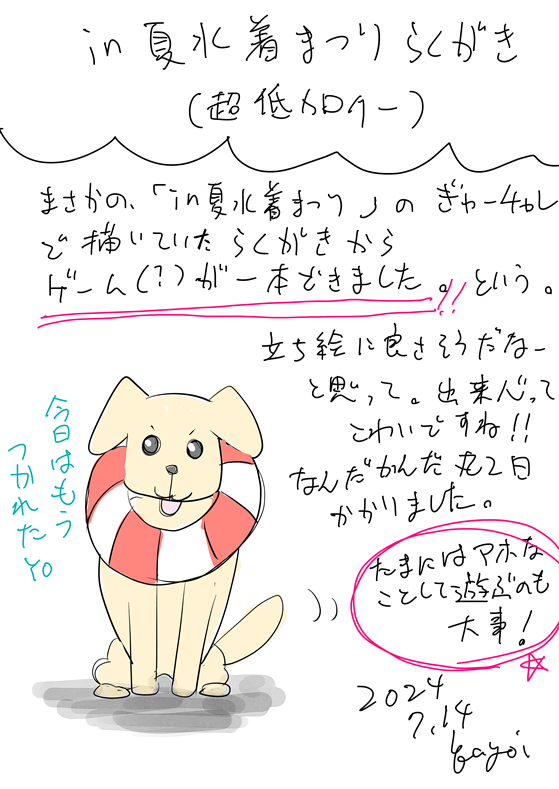 in夏水着まつりらくがき
(超低カロリー)
まさかの、「in夏水着まつり」のぎゅーチャレ
で描いていたらくがきから
ゲーム(?)が一本できました。!!という。
立ち絵に良さそうだなー
と思って。出来心って
こわいですね!!
なんだかんだ丸2日
かかりました。
今日はもう
つかれたYO
たまにはアホな
ことして遊ぶのも
大事!
2024
7.14